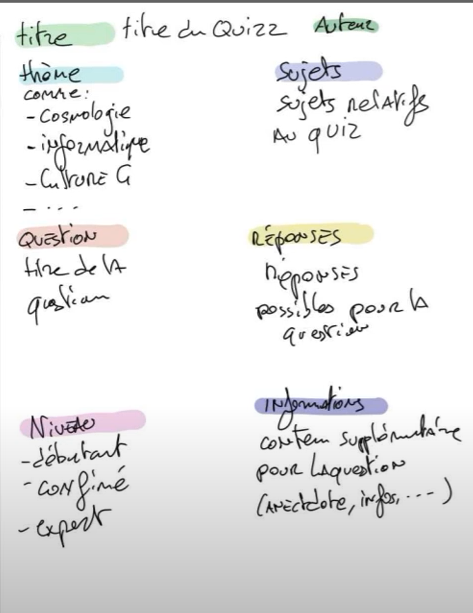 titre titre du Quizz Auteur
thème
comme:
- Cosmologie
- informatique
- Culture G
- ...
Sujets
sujets relatifs
au quiz
Question
titre de la
question
Réponses
Réponses
possibles pour la
question
Niveau
- débutant
- confirmé
- expert
Informations
contenu supplémentaire
pour la question
(anecdote, infos, ...)